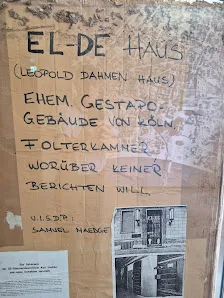 EL-DE HAUS
(LEOPOLD DAHMEN HAUS)
EHEM. GESTAPO-
GEBÄUDE VON KÖLN.
FOLTERKAMMER
WORÜBER KEINER
BERICHTEN WILL
V.I.S.D.P.:
SAMUEL MAEDGE